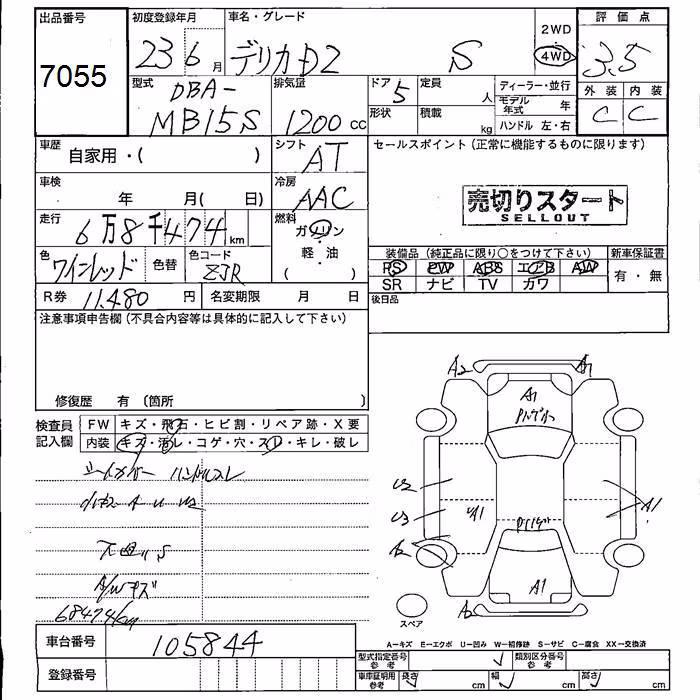 出品番号
7055
初度登録年月
23 6 月
車名・グレード
デリカD2 S
2WD
4WD
評価点
3.5
外装 内装
C C
型式
DBA-
MB15S
排気量
1200 cc
ドア
5
形状
定員
人
積載
kg
ディーラー・並行
モデル年式 年
ハンドル 左・右
車歴
自家用・( )
シフト
AT
セールスポイント(正常に機能するものに限ります)
売切りスタート
SELLOUT
車検
年 月( 日)
冷房
AAC
走行
6万8千474 km
燃料
ガソリン
軽・油
( )
色
ワインレッド
色替
色コード
ZJR
装備品(純正品に限り○をつけて下さい)
PS PW ABS エアB AW
SR ナビ TV カワ
新車保証書
有・無
R券 11,480 円
名変期限 月 日
後日品
注意事項申告欄(不具合内容等は具体的に記入して下さい)
修復歴 有 (箇所 )
検査員記入欄
FW キズ・飛石・ヒビ割・リペア跡・X要
内装 キズ・汚レ・コゲ・穴・スレ・キレ・破レ
ハンドルスレ
A/Wキズ
68474km
A2 A1
A1
U2
U3
A1
A1
A2
A1
A2
スペア
A-キズ E-エクボ U-凹み W-補修跡 S-サビ C-腐食 XX-交換済
車台番号 105844
登録番号
型式指定番号 参考
類別区分番号 参考
車庫証明用 参考
長さ cm 幅 cm 高さ cm